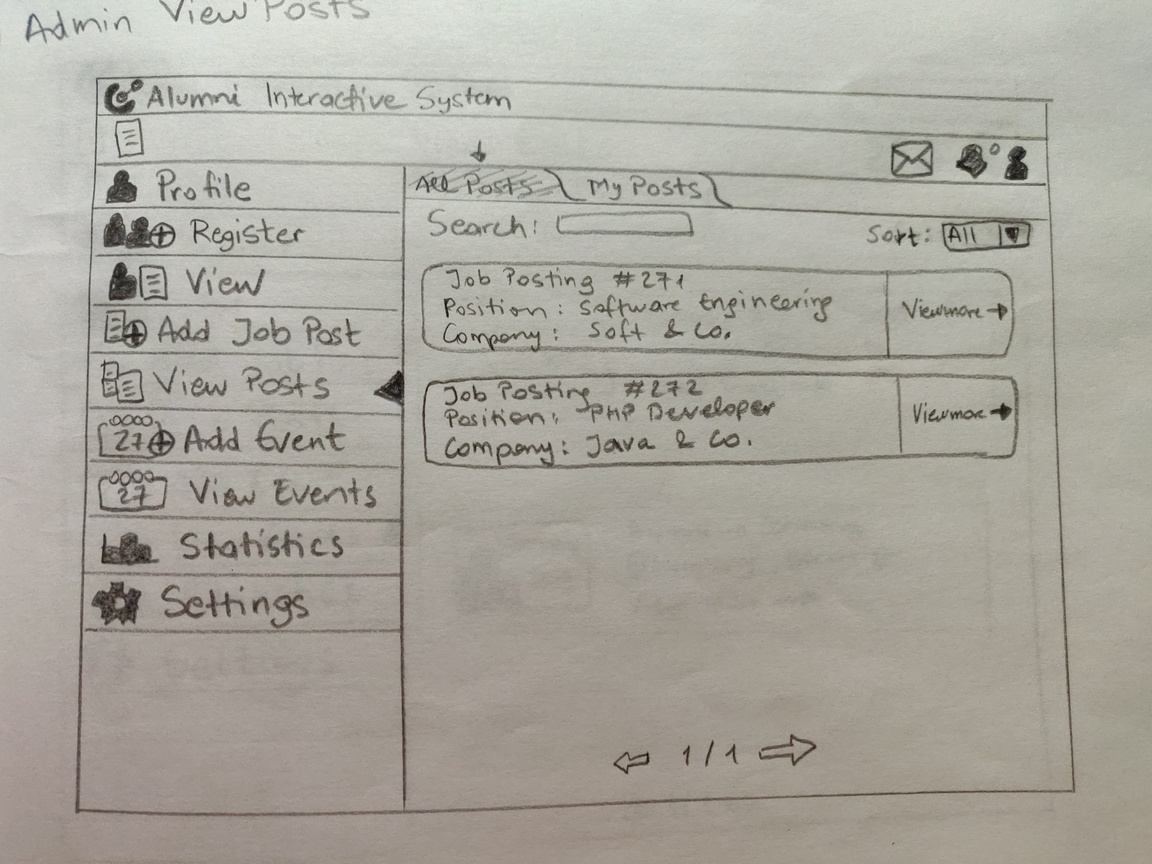 Admin View Posts
Alumni Interactive System
Profile
Register
View
Add Job Post
View Posts
27 Add Event
27 View Events
Statistics
Settings
All Posts My Posts
Search: Sort: All
Job Posting #271
Position: Software Engineering
Company: Soft & Co.
Viewmore
Job Posting #272
Position: PHP Developer
Company: Java & Co.
Viewmore
1/1